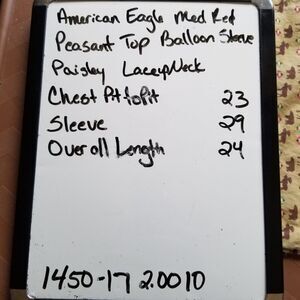 American Eagle Med Red
Peasant Top Balloon Sleeve
Paisley Lacey Neck
Chest Pit to Pit 23
Sleeve 29
Overall Length 24
1450-17 2.0010